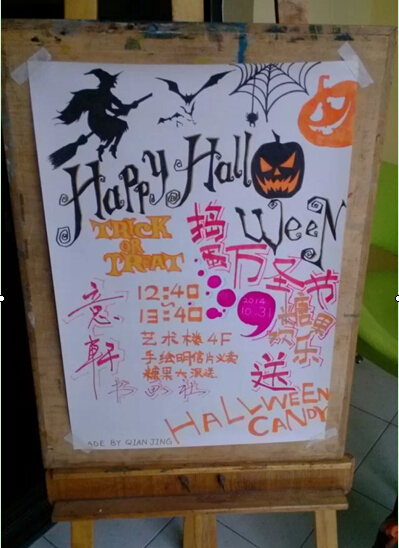 Happy Hall
ween
TRICK
OR
TREAT
捣蛋
万圣节
12:40
13:40
2014
10.31
糖果
欢乐
送
意轩
书画社
艺术楼4F
手绘明信片义卖
糖果大派送
HALLWEEN
CANDY
ADE BY QIANJING